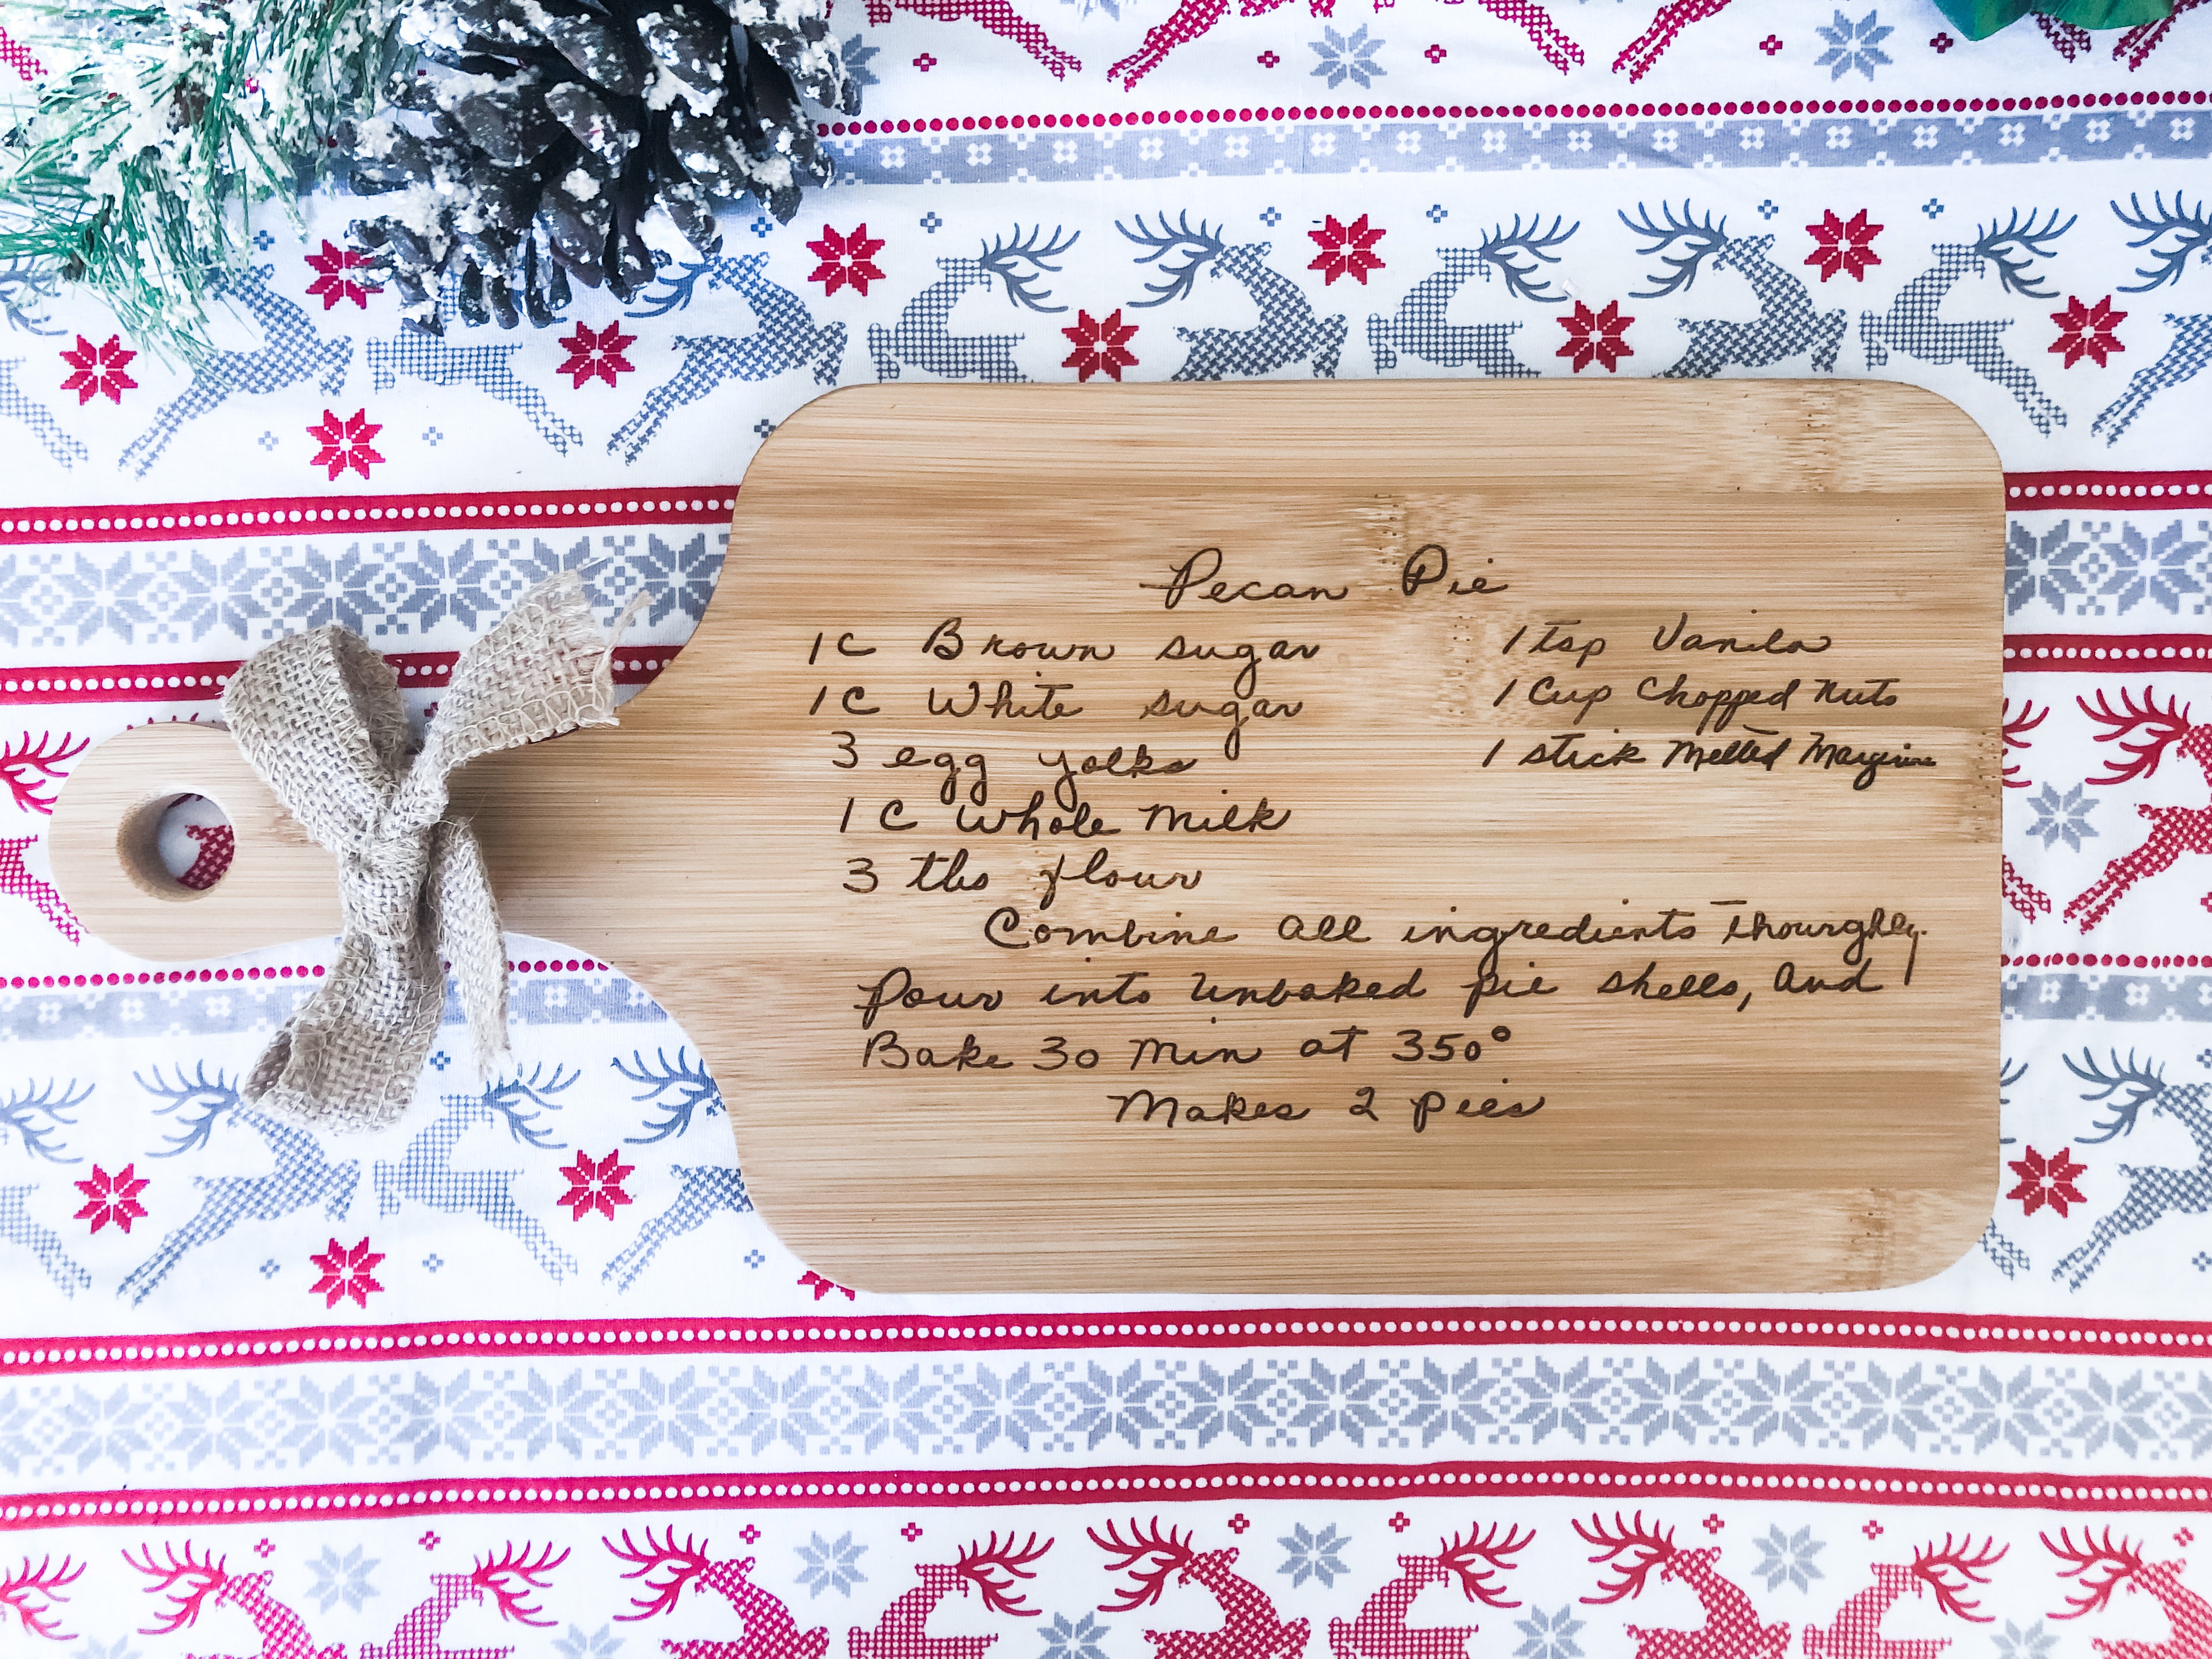 Pecan Pie
1C Brown sugar
1C White sugar
3 egg yolks
1 C Whole Milk
3 tbs flour
1 tsp Vanila
1 Cup Chopped Nuts
1 stick Melted Margine
Combine all ingredients thourghly.
Pour into unbaked pie shells, and
Bake 30 Min at 350°
Makes 2 pies